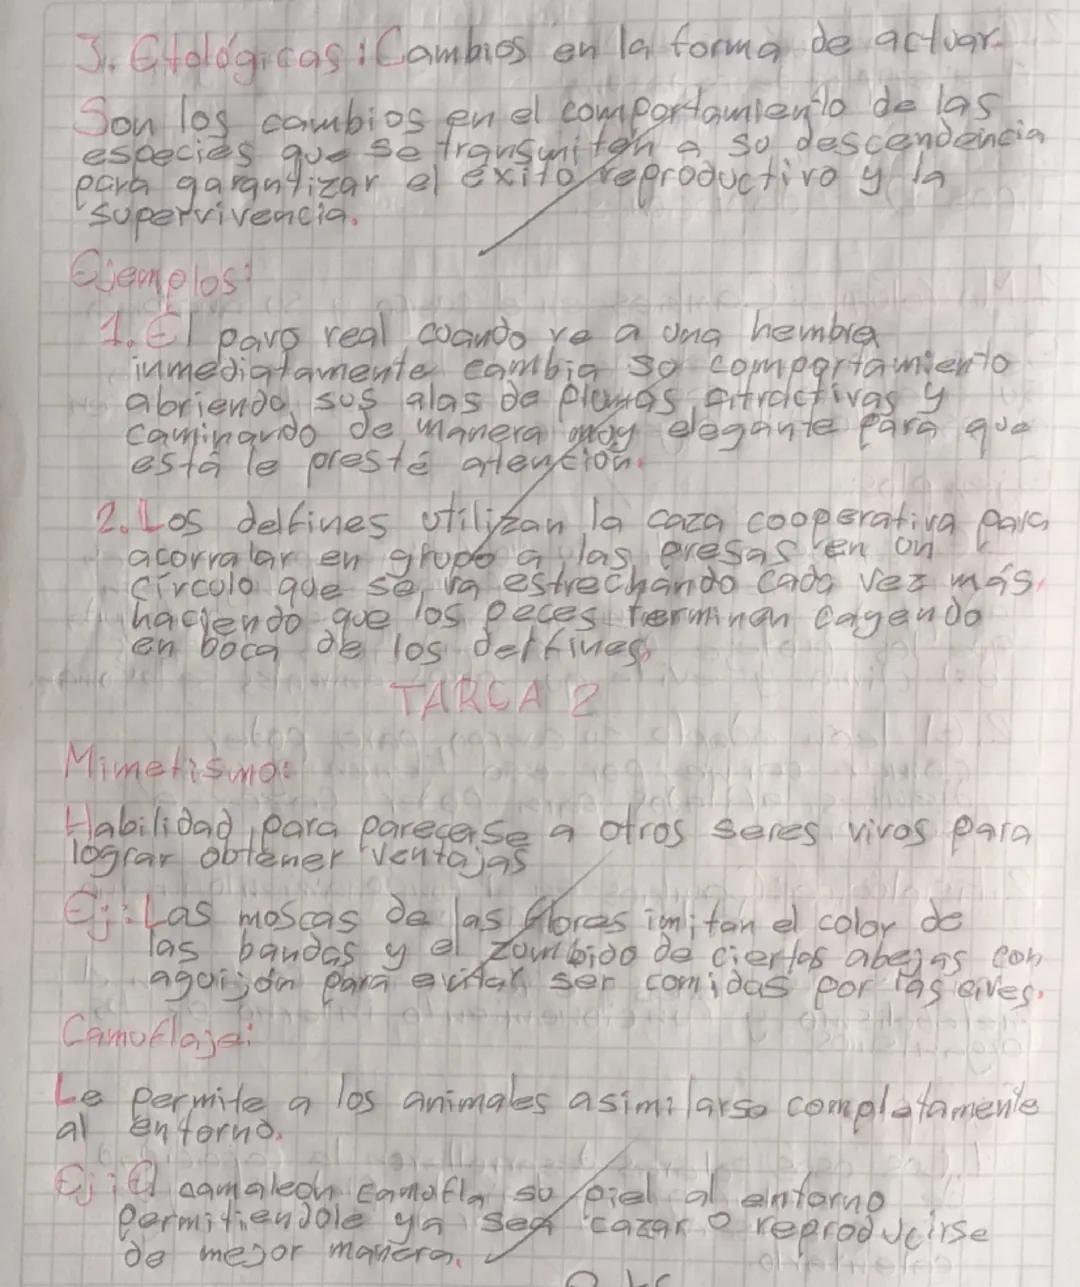 3. Etológicas: Cambios en la forma de actuar.
Son los cambios en el comportamiento de las
especies que se transmiten a su descendencia
para garantizar el éxito reproductivo y la
supervivencia.
Ejemplos:
1. El pavo real cuando ve a una hembra
inmediatamente cambia su comportamiento
abriendo sus alas de plumas atractivas y
caminando de manera muy elegante para que
está le presté atención.
2. Los delfines utilizan la caza cooperativa para
acorralar en grupo a las presas en un
círculo que se va estrechando cada vez más,
haciendo que los peces terminen cayendo
en boca de los delfines.
TAREA 2
Mimetismo:
Habilidad para parecerse a otros seres vivos para
lograr obtener ventajas
Ej: Las moscas de las flores imitan el color de
las bandas y el zumbido de ciertas abejas con
aguijón para evitar ser comidas por las aves.
Camuflaje:
Le permite a los animales asimilarse completamente
al entorno.
Ej: El camaleon camufla su piel al entorno
permitiendole ya sea cazar o reproducirse
de mejor manera.